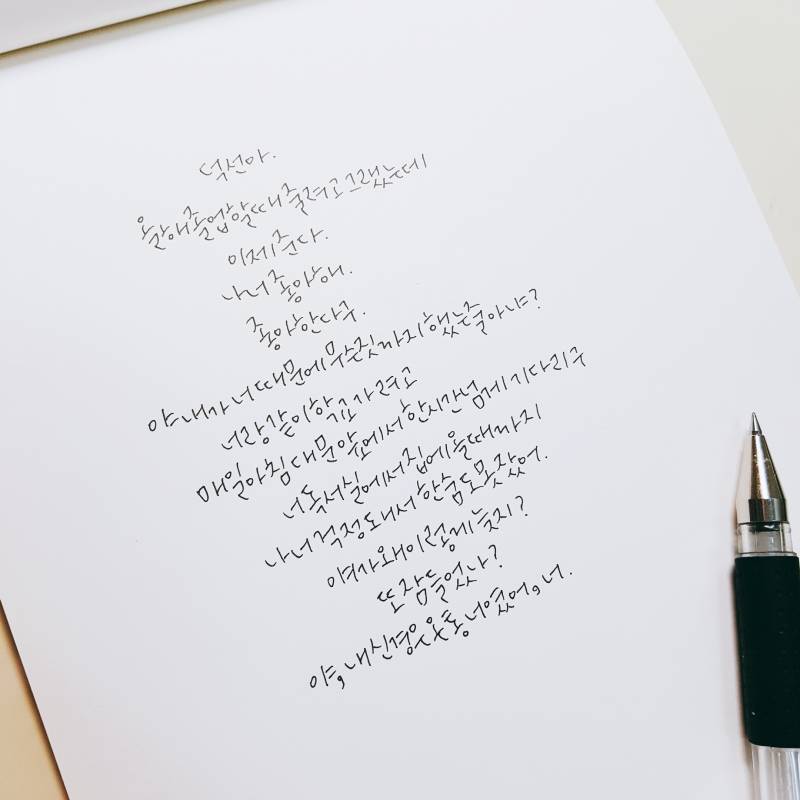 덕선아.
올해졸업할때줄려고그랬는데
이제준다.
나너좋아해.
좋아한다구.
야. 내가너때문에무슨짓까지했는줄아냐?
너랑같이학교가려고
매일아침대문앞에서한시간넘게기다리구
너독서실에서집에올때까지
나너걱정돼서한숨도못잤어.
야가왜이렇게늦지?
또잠들었나?
야, 내신경은온통너였어, 너.